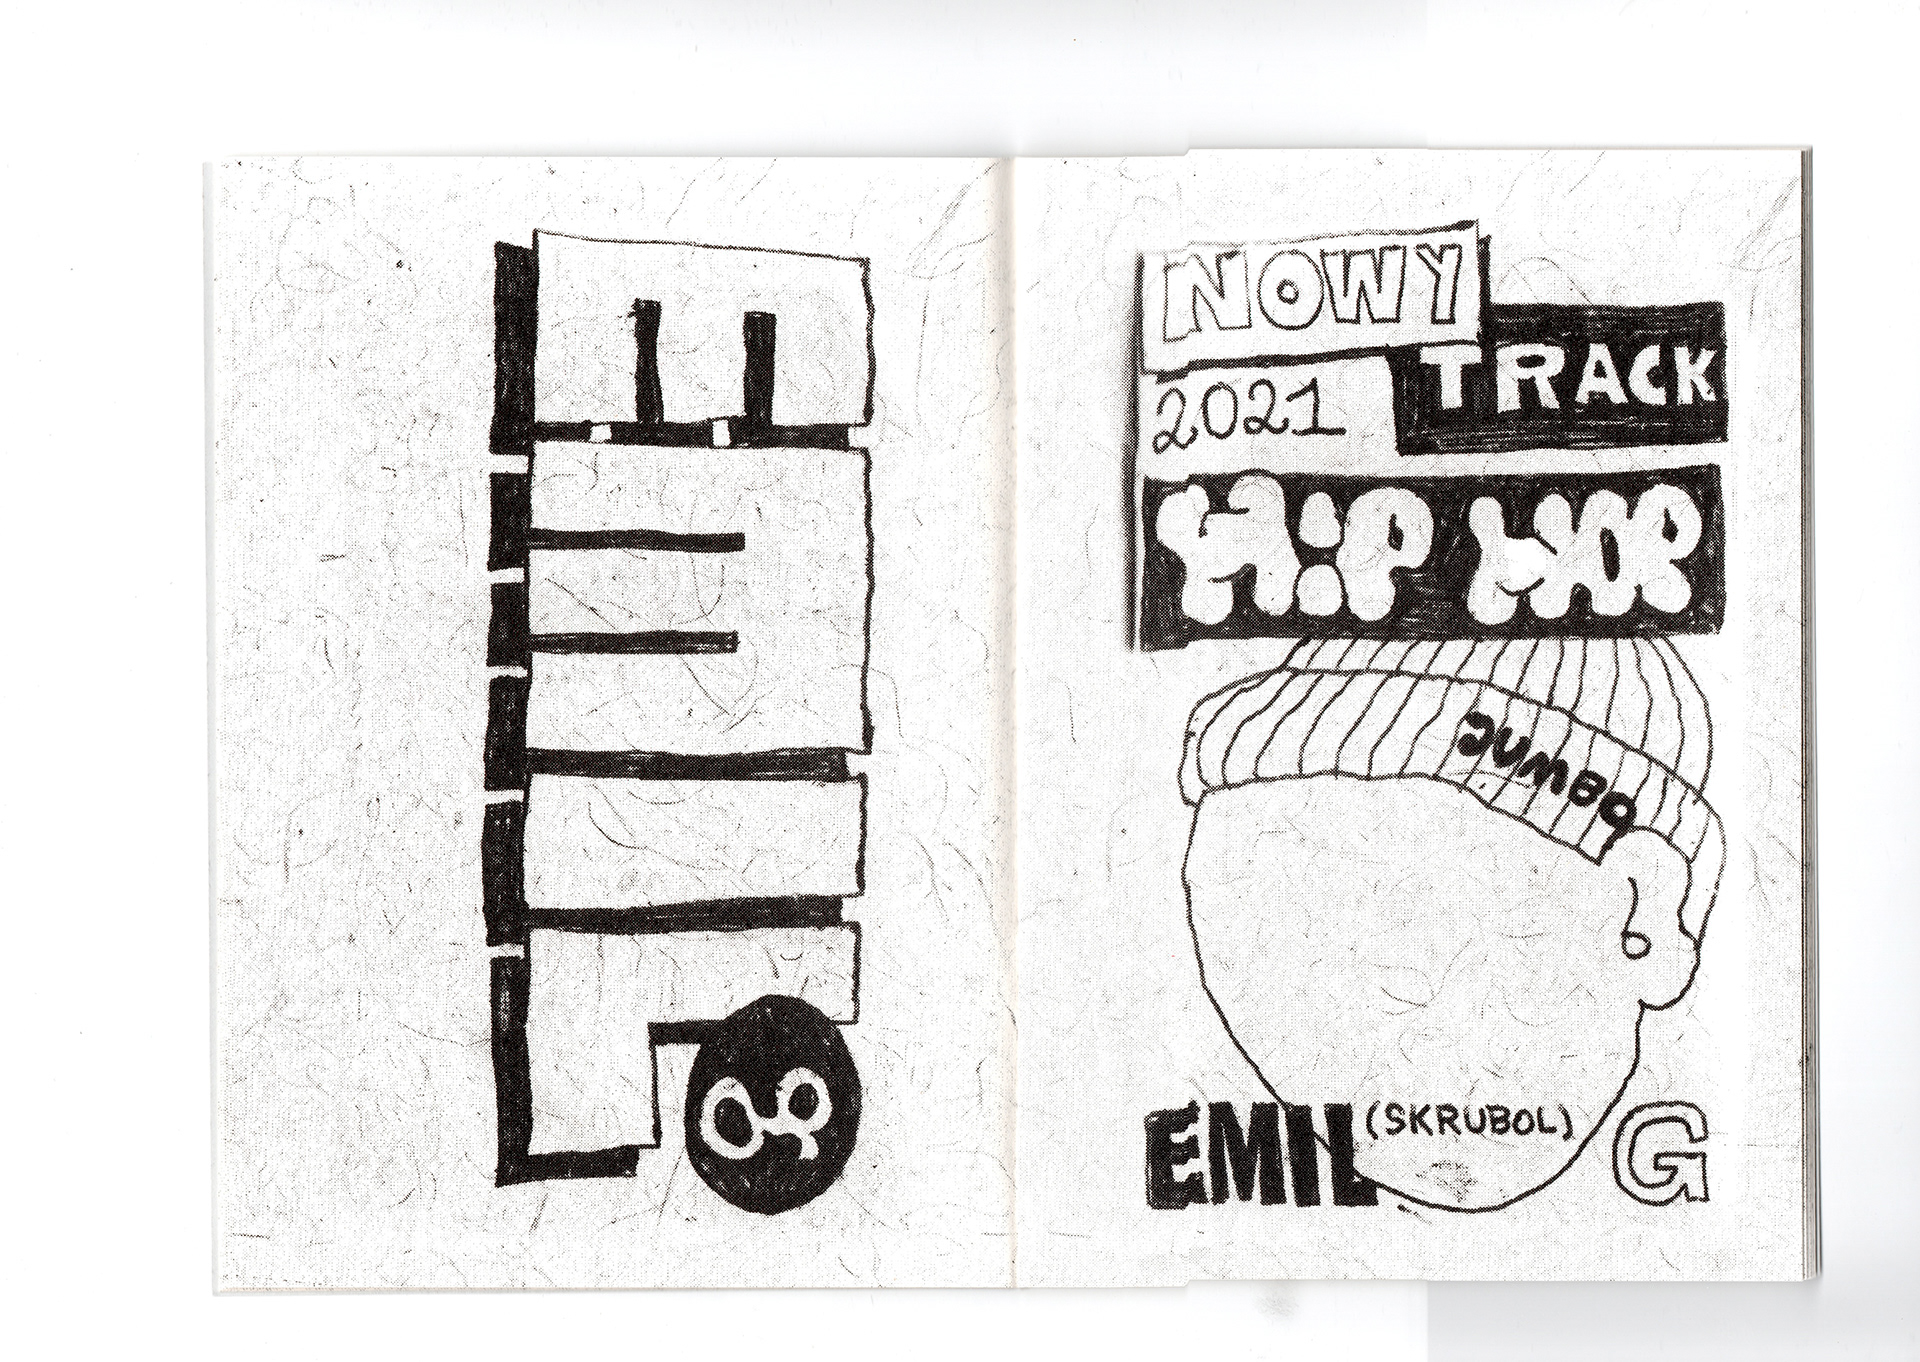 EMIL
NOWY
TRACK
2021
HiP HOP
JUMBO
EMIL (SKRUBOL) G